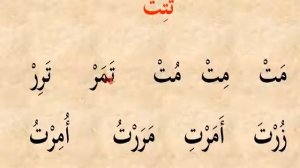 مَتْ مِتْ مُتْ تَمَرْ تَرِرْ
زُرْتَ أَمَرْتِ مَرَرْتُ أُمِرْتُ